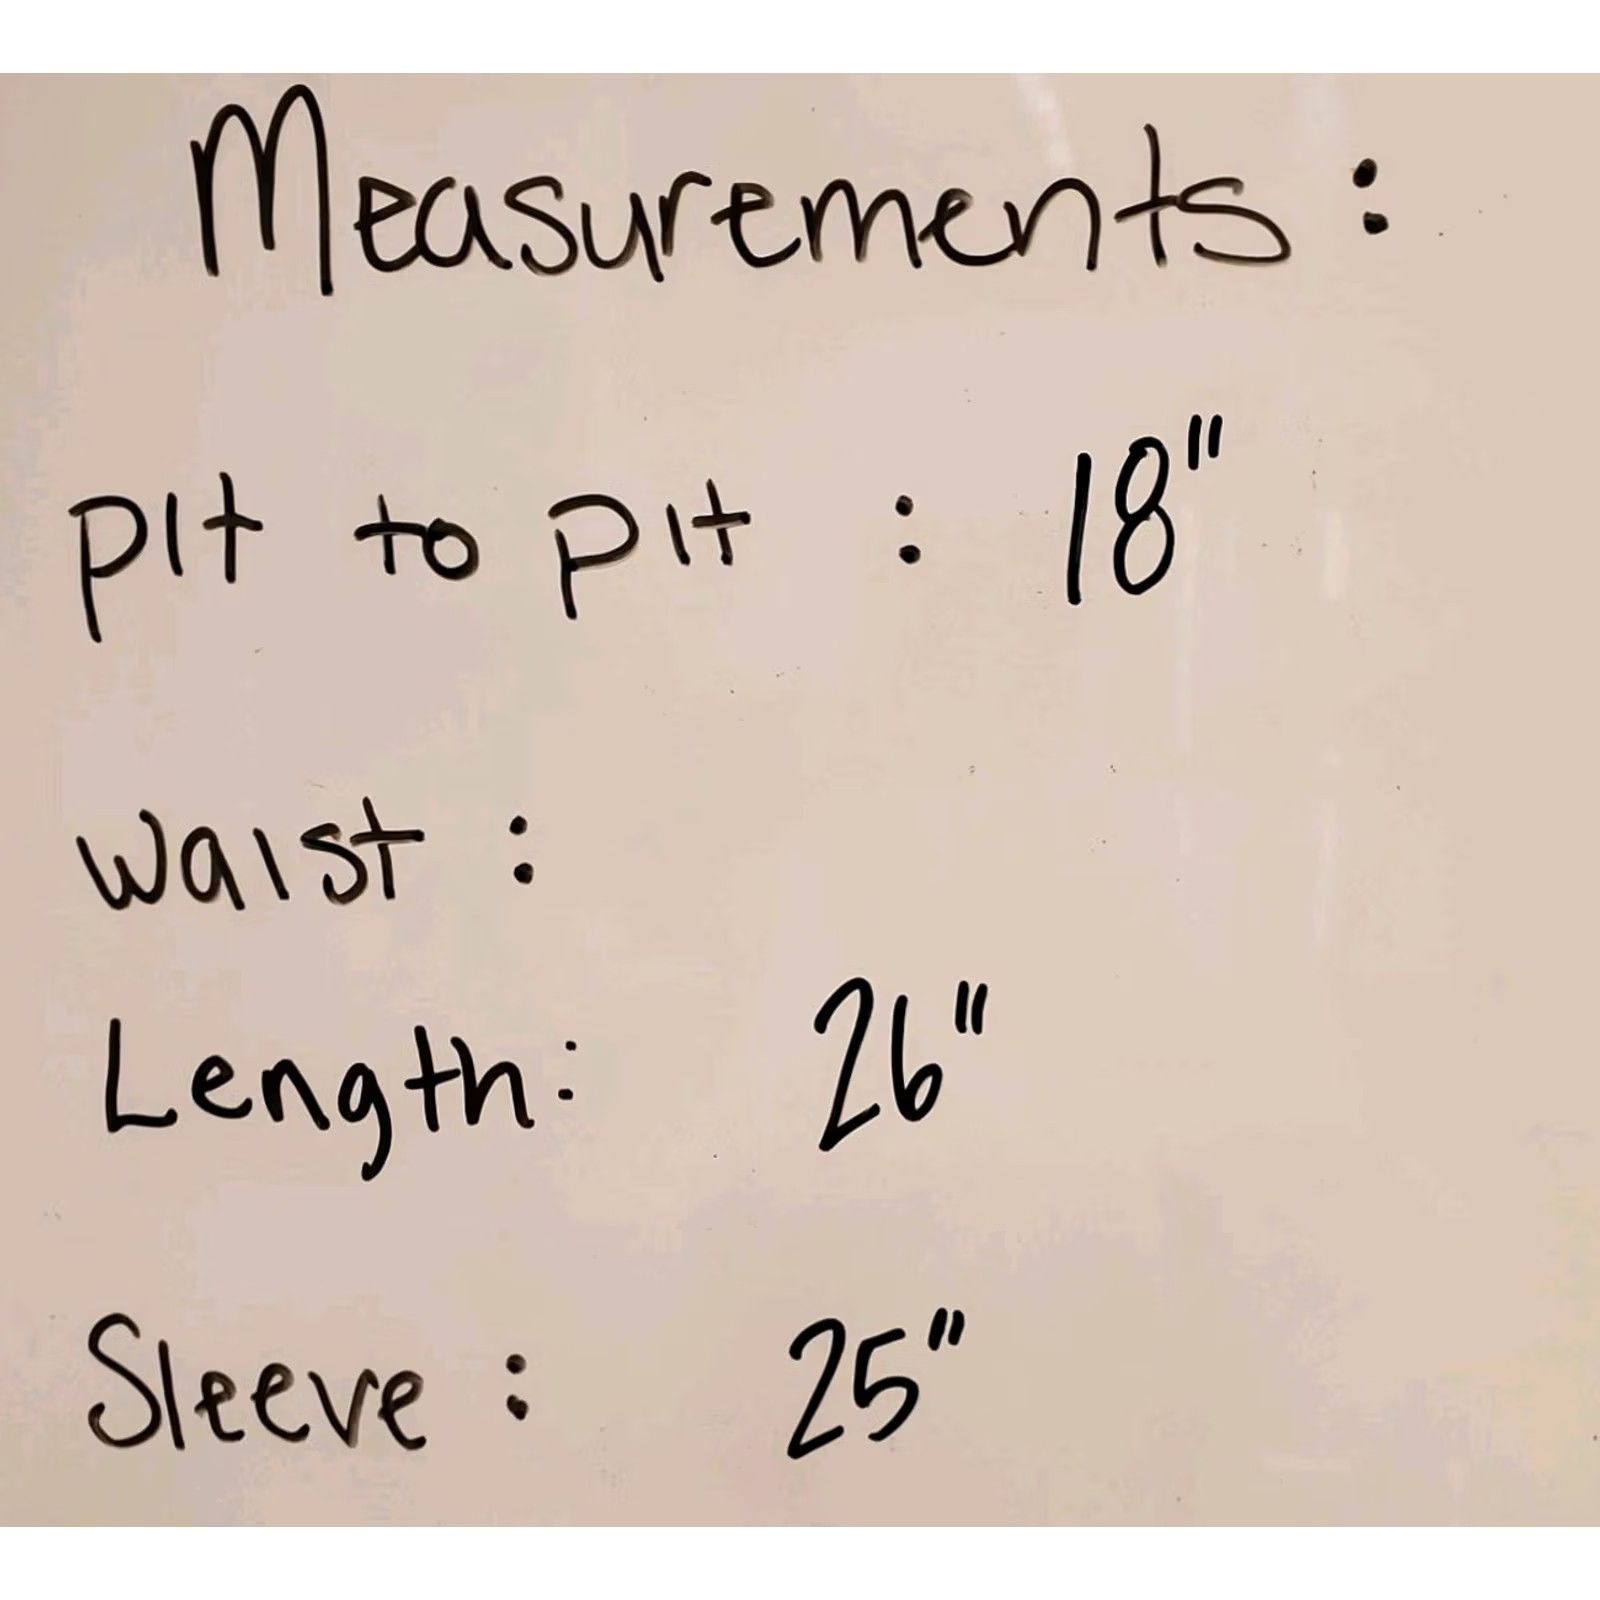 Measurements :
pit to pit : 18"
waist :
Length: 26"
Sleeve : 25"